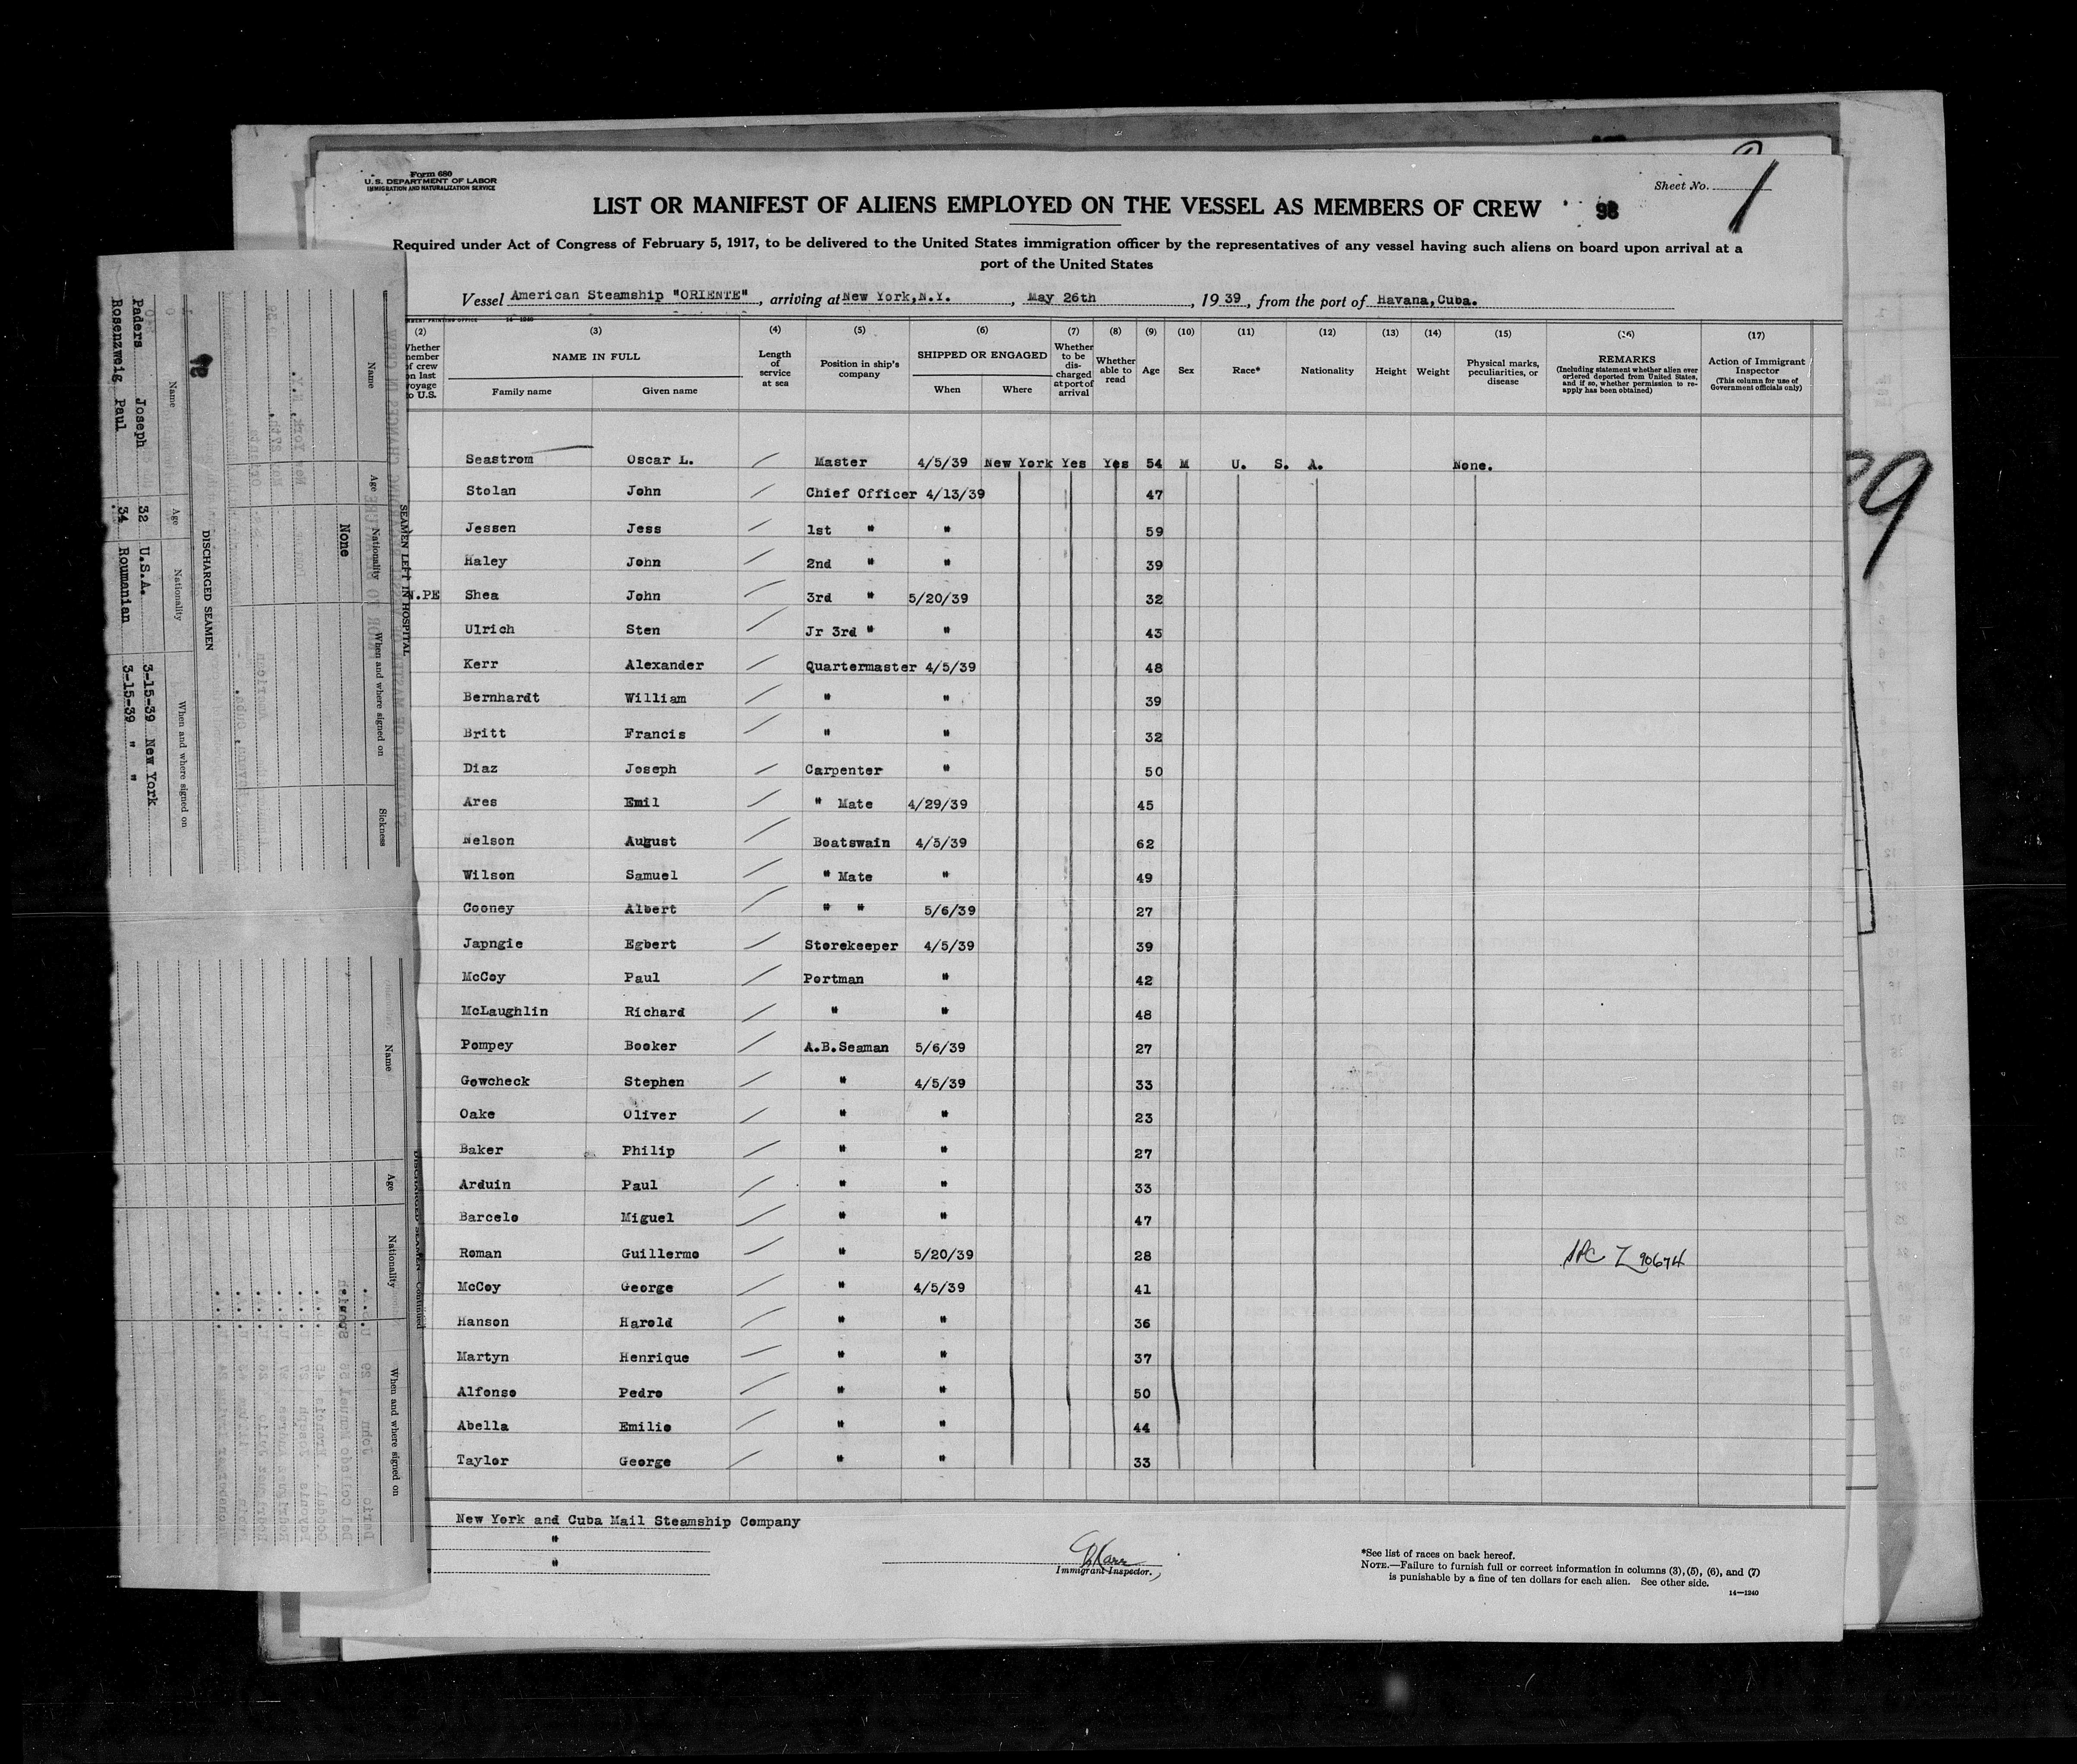 Form 680
U. S. DEPARTMENT OF LABOR
IMMIGRATION AND NATURALIZATION SERVICE
Sheet No. 1
LIST OR MANIFEST OF ALIENS EMPLOYED ON THE VESSEL AS MEMBERS OF CREW 98
Required under Act of Congress of February 5, 1917, to be delivered to the United States immigration officer by the representatives of any vessel having such aliens on board upon arrival at a
port of the United States
Vessel American Steamship "ORIENTE", arriving at New York,N.Y., May 26th, 1939, from the port of Havana,Cuba.
(2) (3) (4) (5) (6) (7) (8) (9) (10) (11) (12) (13) (14) (15) (16) (17)
Whether member of crew on last voyage to U.S.
NAME IN FULL
Family name Given name
Length of service at sea
Position in ship's company
SHIPPED OR ENGAGED
When Where
Whether to be discharged at port of arrival
Whether able to read
Age Sex Race* Nationality Height Weight
Physical marks, peculiarities, or disease
REMARKS
(Including statement whether alien ever ordered deported from United States, and if so, whether permission to re-apply has been obtained)
Action of Immigrant Inspector
(This column for use of Government officials only)
Seastrom Oscar L. Master 4/5/39 New York Yes Yes 54 M U. S. A. None.
Stolan John Chief Officer 4/13/39 47
Jessen Jess 1st " " 59
Haley John 2nd " " 39
N.PE Shea John 3rd " 5/20/39 32
Ulrich Sten Jr 3rd " " 43
Kerr Alexander Quartermaster 4/5/39 48
Bernhardt William " " 39
Britt Francis " " 32
Diaz Joseph Carpenter " 50
Ares Emil " Mate 4/29/39 45
Nelson August Boatswain 4/5/39 62
Wilson Samuel " Mate " 49
Cooney Albert " " 5/6/39 27
Japngie Egbert Storekeeper 4/5/39 39
McCoy Paul Portman " 42
McLaughlin Richard " " 48
Pompey Booker A.B.Seaman 5/6/39 27
Gowcheck Stephen " 4/5/39 33
Oake Oliver " " 23
Baker Philip " " 27
Arduin Paul " " 33
Barcelo Miguel " " 47
Roman Guillermo " 5/20/39 28 Z 90674
McCoy George " 4/5/39 41
Hanson Harold " " 36
Martyn Henrique " " 37
Alfonso Pedro " " 50
Abella Emilio " " 44
Taylor George " " 33
New York and Cuba Mail Steamship Company
"
"
Immigrant Inspector.
*See list of races on back hereof.
NOTE.—Failure to furnish full or correct information in columns (3), (5), (6), and (7)
is punishable by a fine of ten dollars for each alien. See other side.
14—1240
SEAMEN LEFT IN HOSPITAL
Name Age Nationality When and where signed on Sickness
None
DISCHARGED SEAMEN
Name Age Nationality When and where signed on
Paders Joseph 32 U.S.A. 3-15-39 New York
Rosenzweig Paul 34 Roumanian 3-15-39 " "
DISCHARGED SEAMEN Continued
Name Age Nationality When and where signed on